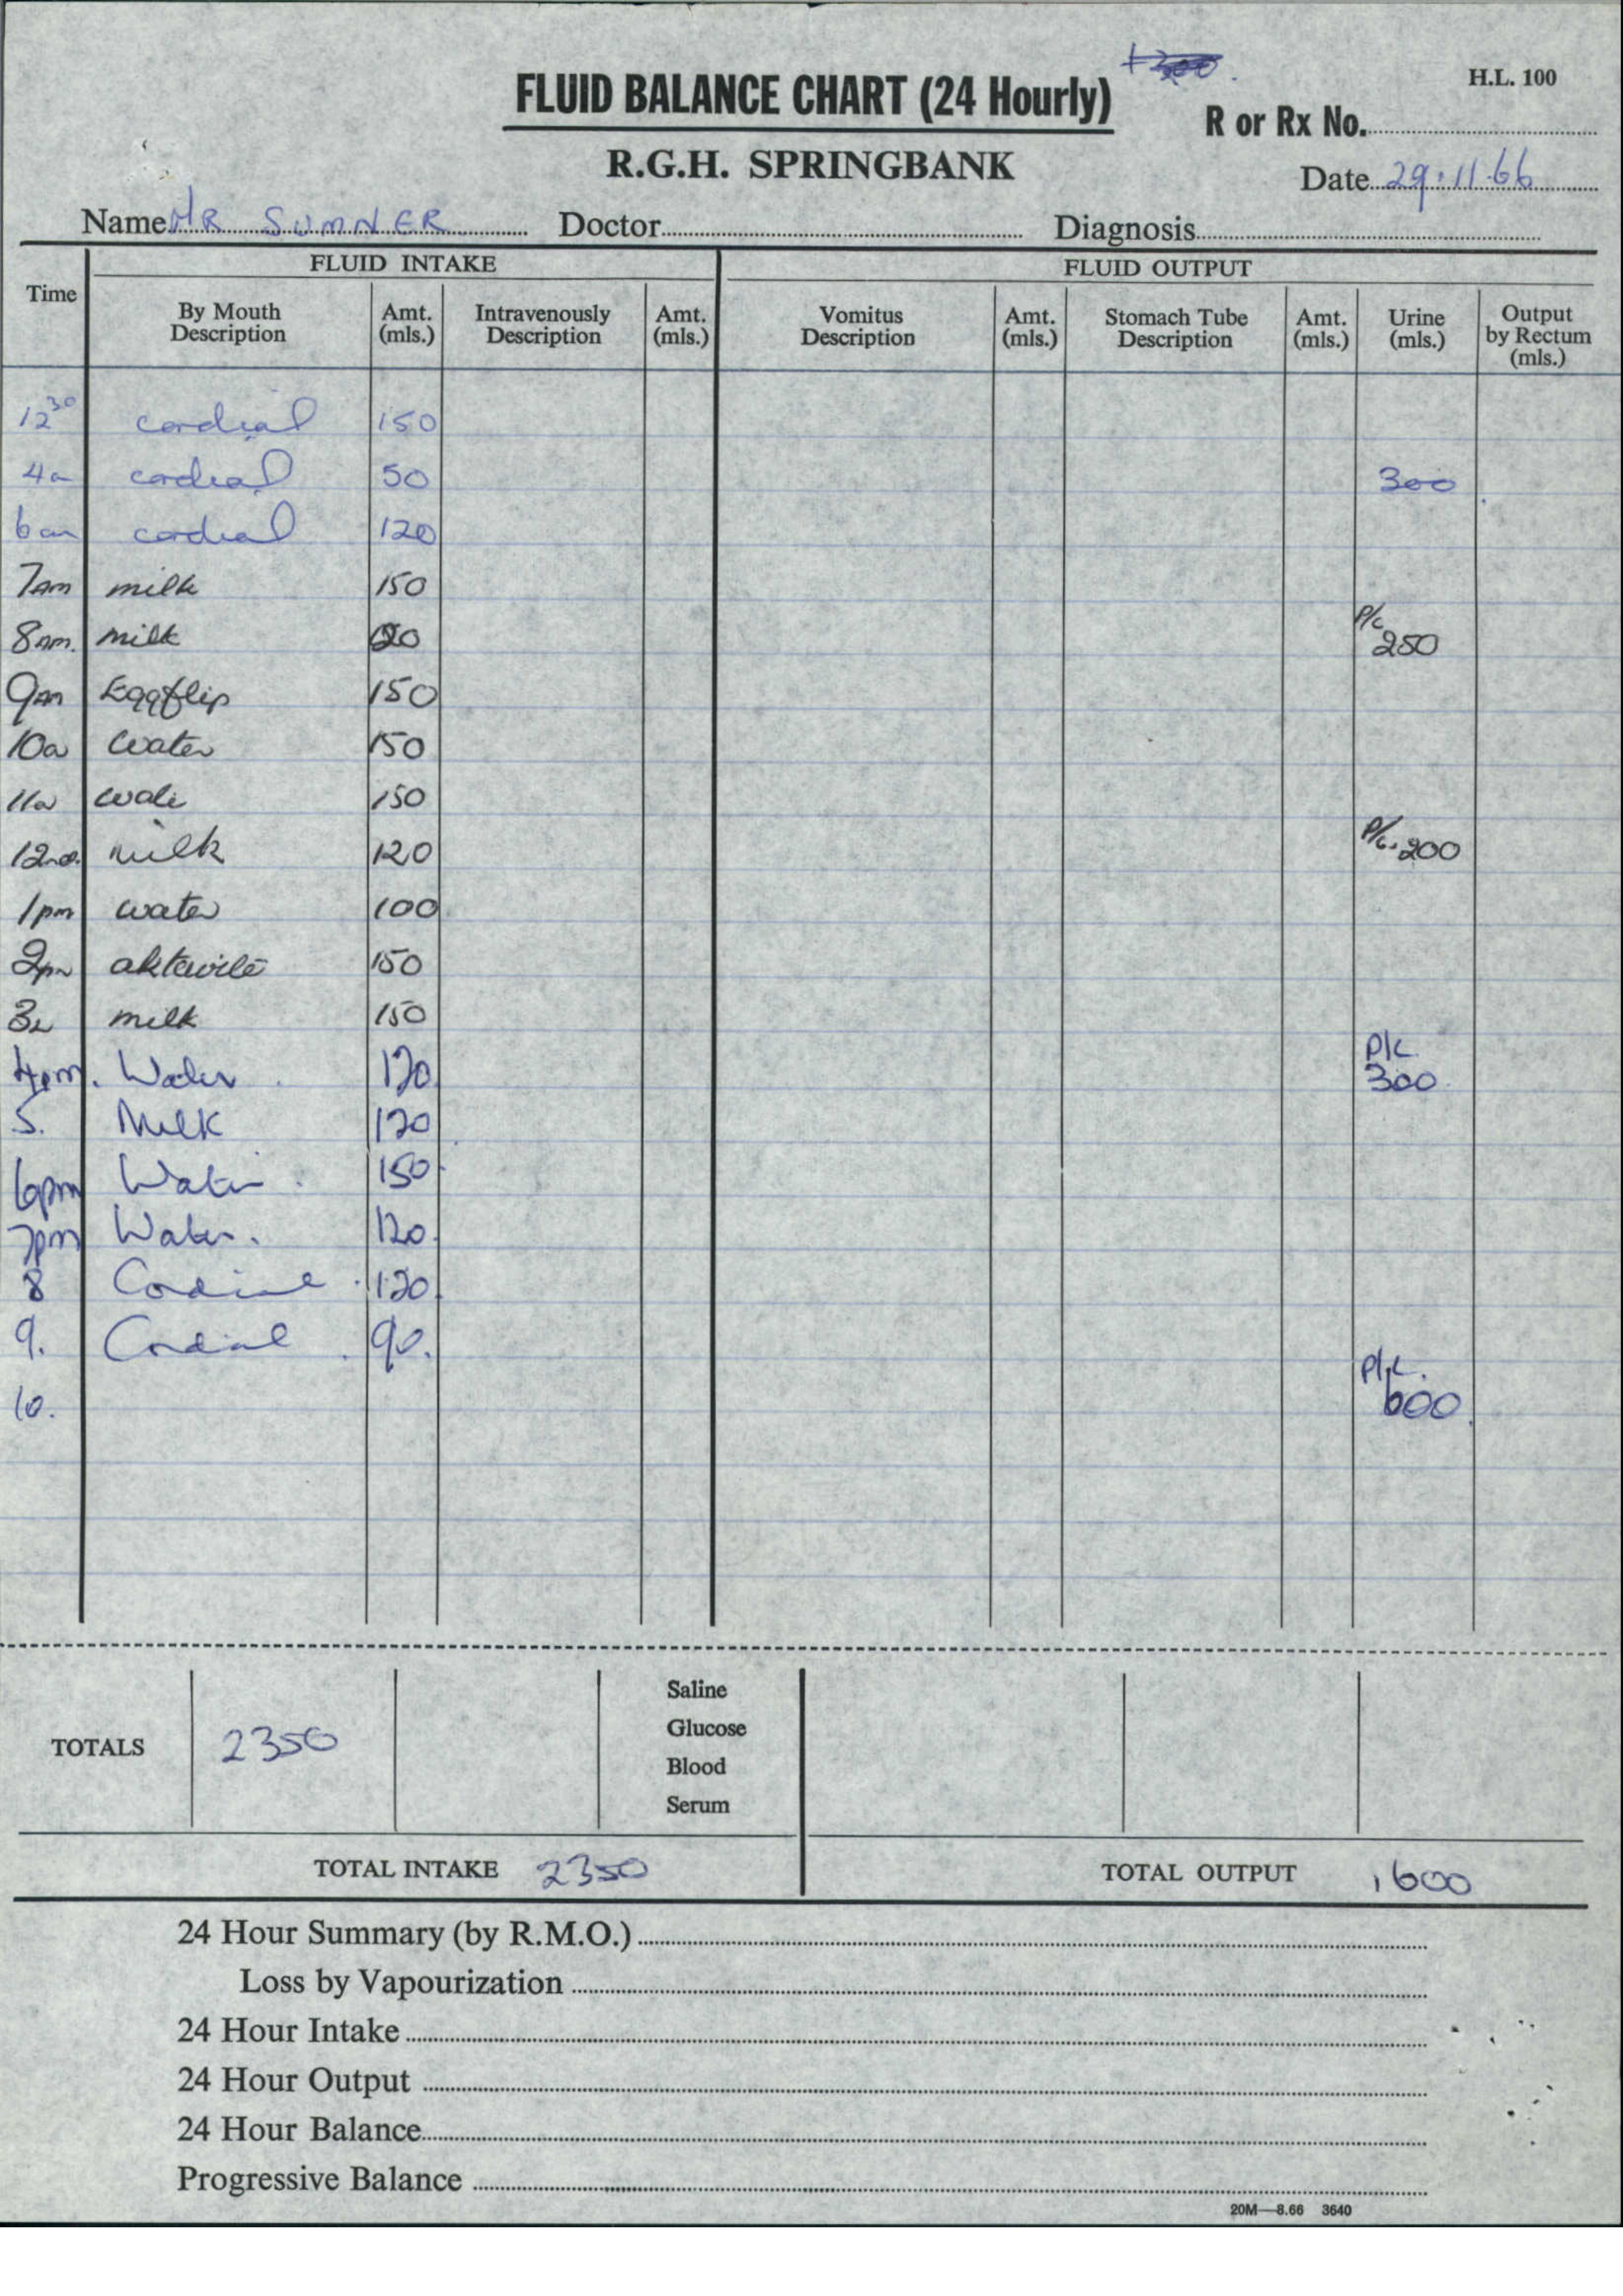 FLUID BALANCE CHART (24 Hourly)
H.L. 100
R or Rx No.
R.G.H. SPRINGBANK
Date 29.11.66
Name MR SUMNER Doctor Diagnosis
FLUID INTAKE FLUID OUTPUT
Time By Mouth Description Amt. (mls.) Intravenously Description Amt. (mls.) Vomitus Description Amt. (mls.) Stomach Tube Description Amt. (mls.) Urine (mls.) Output by Rectum (mls.)
12 30 cordial 150
4a cordial 50 300
6am cordial 120
7am milk 150
8am. milk P/c 250
9am Eggflip 150
10a water 150
11a 150
12nd. milk 120 P/c. 200
1pm water 100
2pm aktavite 150
3 milk 150
4pm. Water 120 P/c 300
5. Milk 120
6pm Water 150
7pm Water. 120
8 Cordial 120
9. Cordial 90.
10. P/c. 600
TOTALS 2350 Saline
Glucose
Blood
Serum
TOTAL INTAKE 2350 TOTAL OUTPUT 1600
24 Hour Summary (by R.M.O.)
Loss by Vapourization
24 Hour Intake
24 Hour Output
24 Hour Balance
Progressive Balance
20M—8.66 3640